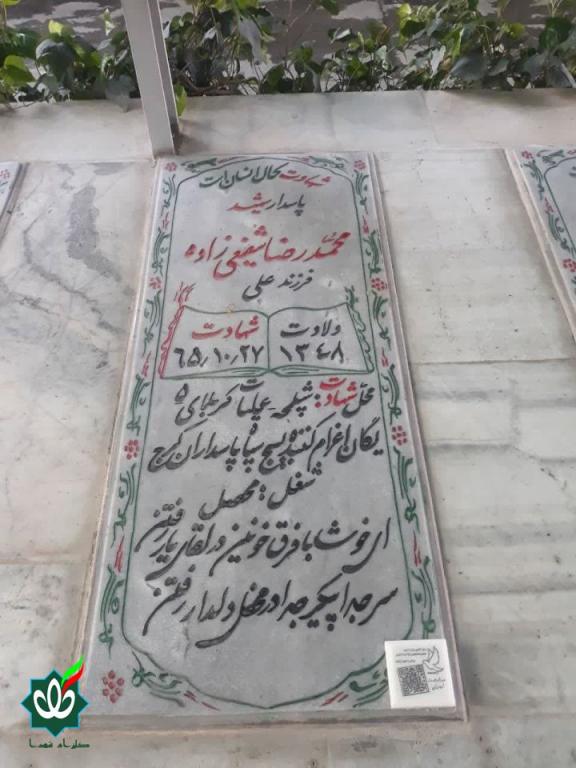 شهادت کمال انسان است
پاسدار رشید
محمدرضا شفیعی زاده
فرزند علی
ولادت
۱۳۴۸
شهادت
۶۵/۱۰/۲۷
محل شهادت: شلمچه عملیات کربلای ۵
یگان اعزام کننده بسیج سپاه پاسداران کرج
شغل: محصل
ای خوشا با فرق خونین در لقای یار رفتن
سر جدا پیکر جدا در محفل دلدار رفتن
گلزار شهدا